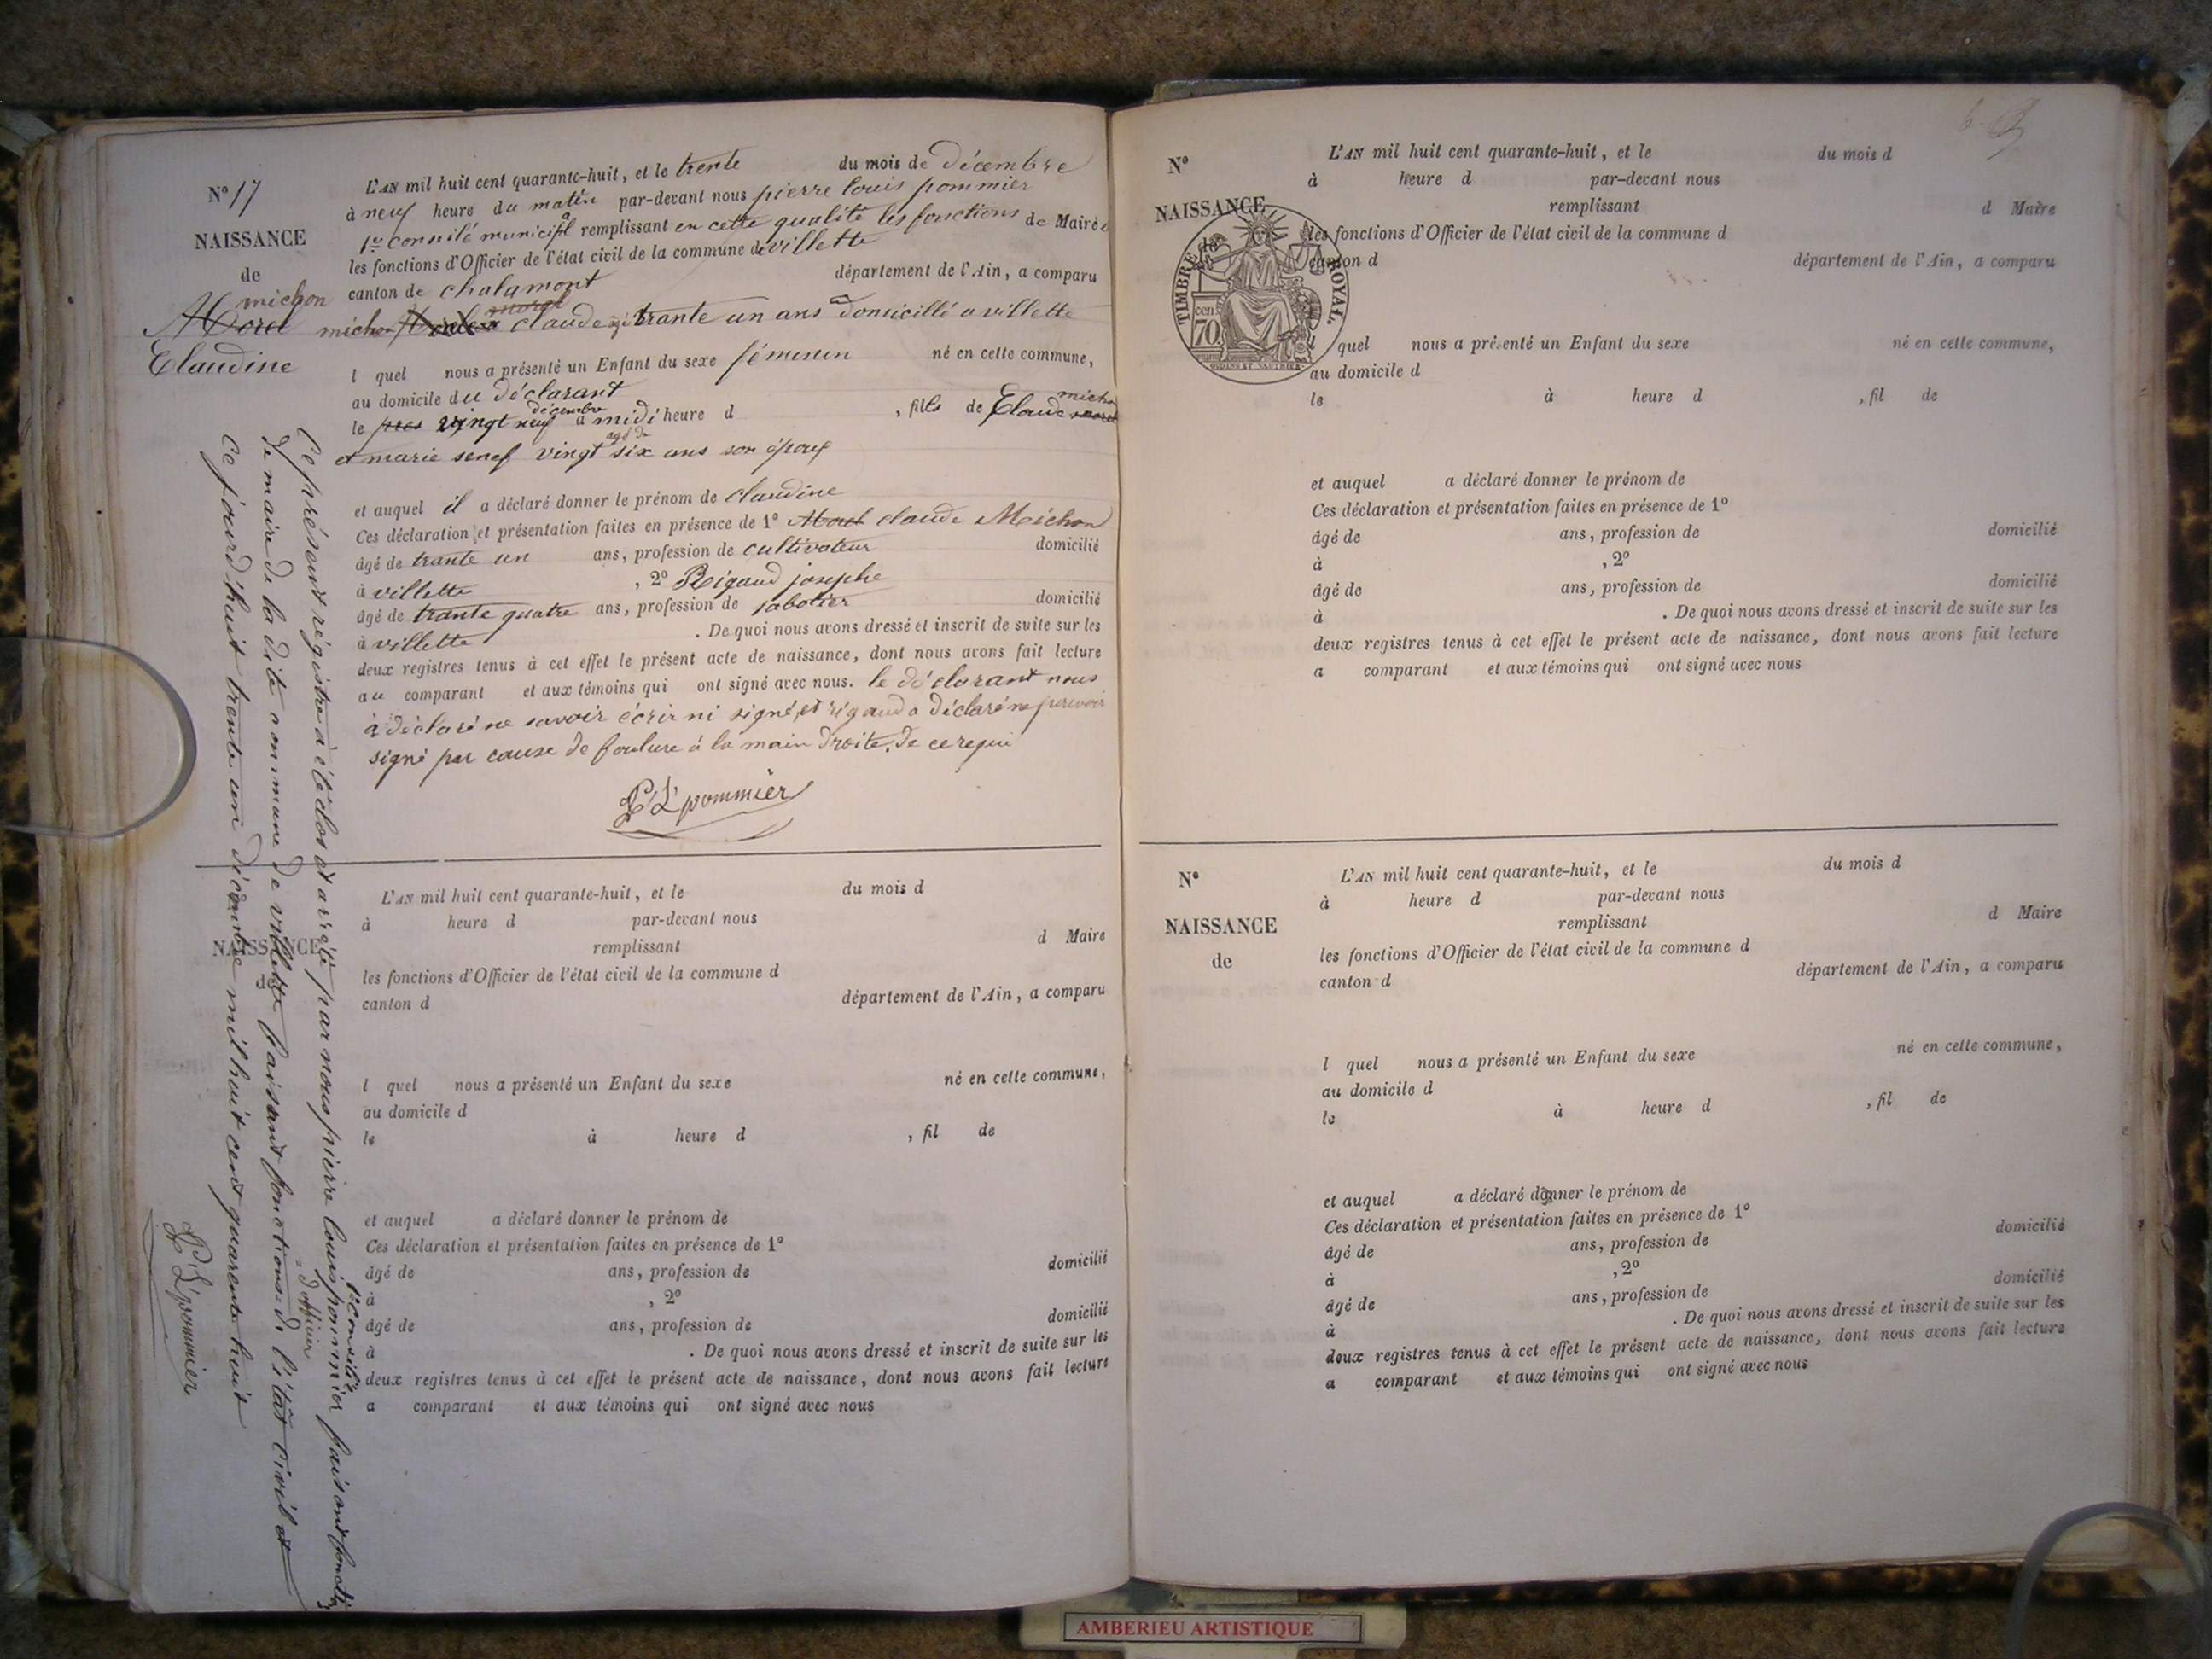 N° 17
NAISSANCE
de
michon
Morel
Claudine
L'AN mil huit cent quarante-huit, et le trente du mois de décembre
à neuf heure du matin par-devant nous pierre louis pommier
1er consilé municipal remplissant en cette qualité les fonctions de Maire
les fonctions d'Officier de l'état civil de la commune de villette
canton de chalamont département de l'Ain, a comparu
michon claude agé trante un ans domicillé a villette
l quel nous a présenté un Enfant du sexe féminin né en cette commune,
au domicile du déclarant
décembre michon
le vingt neuf à midi heure d , fills de Claude morel
agé de
et marie senef vingt six ans son épouse
et auquel il a déclaré donner le prénom de claudine
Ces déclaration et présentation faites en présence de 1° Morel claude Michon
âgé de trante un ans, profession de cultivateur domicilié
à villette , 2° Rigaud josephe
âgé de trante quatre ans, profession de sabotier domicilié
à villette . De quoi nous avons dressé et inscrit de suite sur les
deux registres tenus à cet effet le présent acte de naissance, dont nous avons fait lecture
au comparant et aux témoins qui ont signé avec nous. le déclarant nous
à déclaré ne savoir écrir ni signé, et rigaud a déclaré ne
signé par cause de foulure à la main droite. de ce requi
P L pommier
Ce présent régistre à été clos et arrété par nous pierre louis pommier 1er consilé faisant fonction
de maire de la dite commune de villette faisant fonctions d'officier de l'état civil et
Ce jourd'huit trente un décembre mil huit cent quarente huit
P L pommier
NAISSANCE
de
L'AN mil huit cent quarante-huit, et le du mois d
à heure d par-devant nous
remplissant d Maire
les fonctions d'Officier de l'état civil de la commune d
canton d département de l'Ain, a comparu
l quel nous a présenté un Enfant du sexe né en cette commune,
au domicile d
le à heure d , fil de
et auquel a déclaré donner le prénom de
Ces déclaration et présentation faites en présence de 1°
âgé de ans, profession de domicilié
à , 2°
âgé de ans, profession de domicilié
à . De quoi nous avons dressé et inscrit de suite sur les
deux registres tenus à cet effet le présent acte de naissance, dont nous avons fait lecture
a comparant et aux témoins qui ont signé avec nous
N°
NAISSANCE
de
TIMBRE ROYAL
70 cen
L'AN mil huit cent quarante-huit, et le du mois d
à heure d par-devant nous
remplissant d Maire
les fonctions d'Officier de l'état civil de la commune d
canton d département de l'Ain, a comparu
quel nous a présenté un Enfant du sexe né en cette commune,
au domicile d
le à heure d , fil de
et auquel a déclaré donner le prénom de
Ces déclaration et présentation faites en présence de 1°
âgé de ans, profession de domicilié
à , 2°
âgé de ans, profession de domicilié
à . De quoi nous avons dressé et inscrit de suite sur les
deux registres tenus à cet effet le présent acte de naissance, dont nous avons fait lecture
a comparant et aux témoins qui ont signé avec nous
N°
NAISSANCE
de
L'AN mil huit cent quarante-huit, et le du mois d
à heure d par-devant nous
remplissant d Maire
les fonctions d'Officier de l'état civil de la commune d
canton d département de l'Ain, a comparu
l quel nous a présenté un Enfant du sexe né en cette commune,
au domicile d
le à heure d , fil de
et auquel a déclaré donner le prénom de
Ces déclaration et présentation faites en présence de 1°
âgé de ans, profession de domicilié
à , 2°
âgé de ans, profession de domicilié
à . De quoi nous avons dressé et inscrit de suite sur les
deux registres tenus à cet effet le présent acte de naissance, dont nous avons fait lecture
a comparant et aux témoins qui ont signé avec nous
AMBERIEU ARTISTIQUE